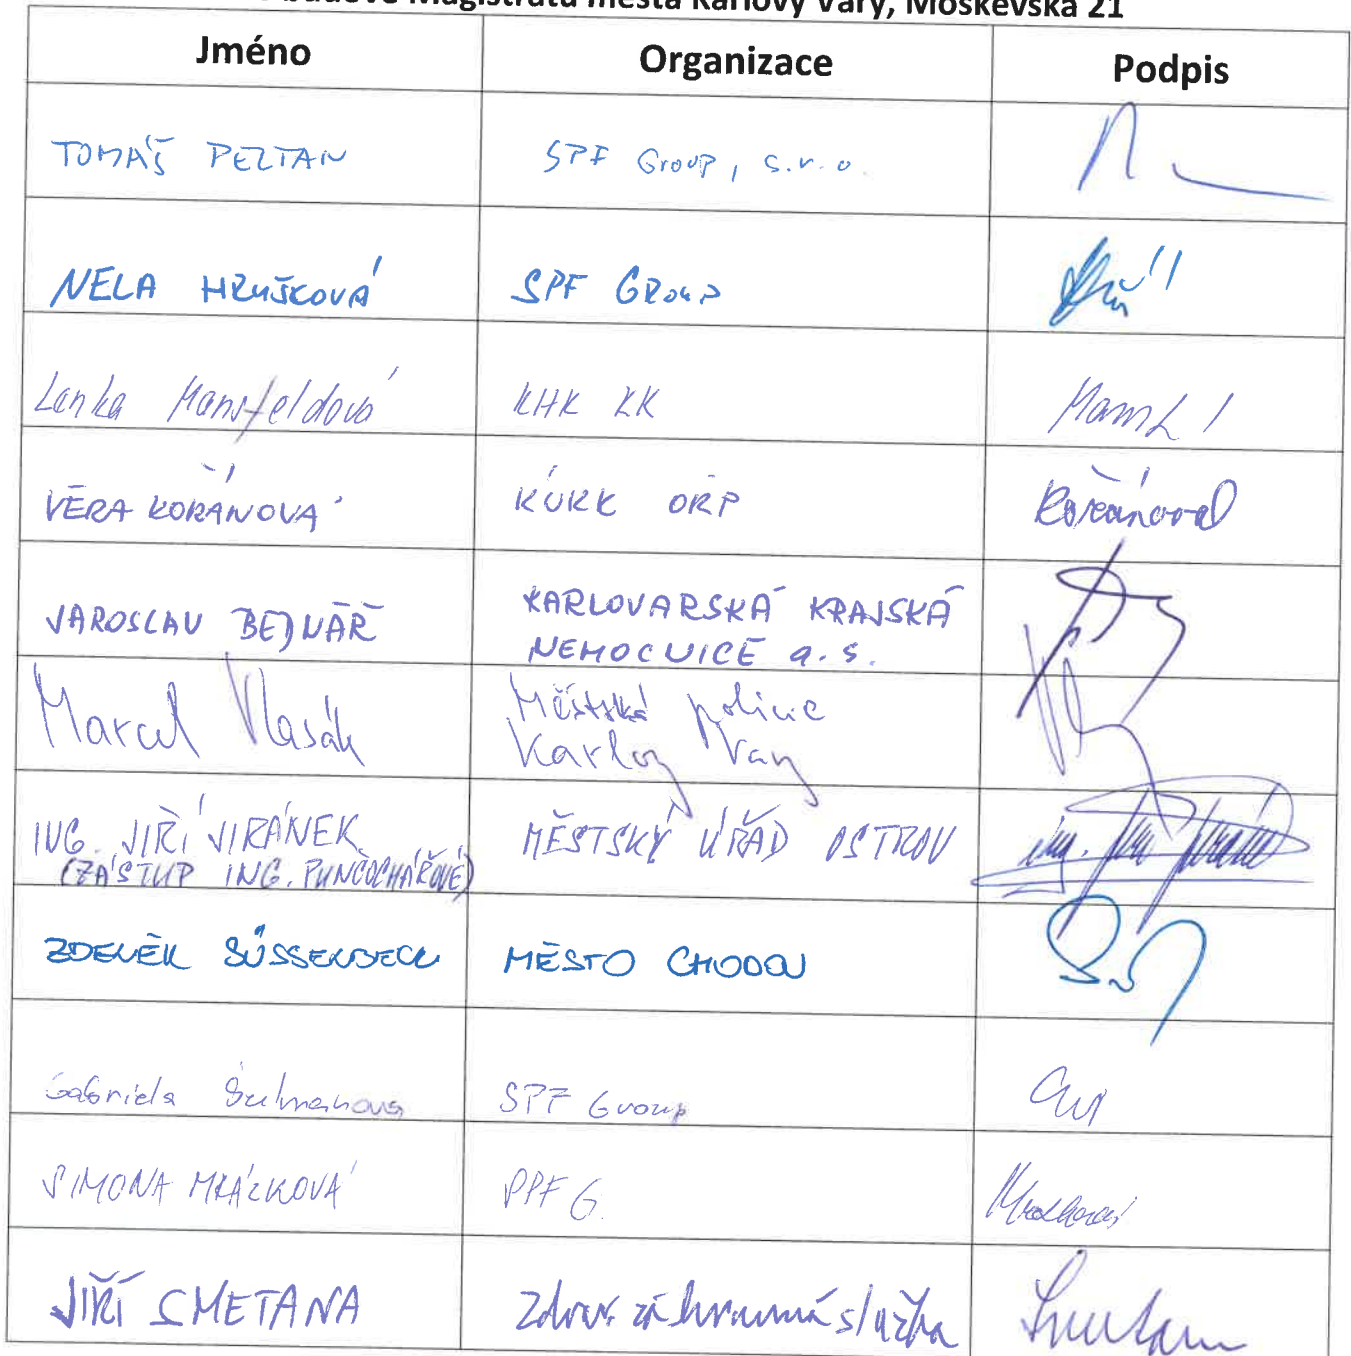 budově Magistrátu města Karlovy Vary, Moskevská 21
Jméno Organizace Podpis
TOMÁŠ PELTAN SPF Group, s.r.o.
NELA HRUŠKOVÁ SPF GROUP
Lenka Mansfeldová KHK KK
VĚRA KOŘÁNOVÁ KÚKK ORP Kořánová
JAROSLAV BEDNÁŘ KARLOVARSKÁ KRAJSKÁ
NEMOCNICE a.s.
Marcel Vlasák Městská policie
Karlovy Vary
ING. JIŘÍ JIRÁNEK MĚSTSKÝ ÚŘAD OSTROV ing. Jiří Jiránek
(ZÁSTUP ING. PUNČOCHÁŘOVÉ)
ZDENĚK SÜSSENBECK MĚSTO CHODOV
Gabriela SPF Group
SIMONA MRÁZKOVÁ PPF G. Mrázková
JIŘÍ SMETANA Zdrav. záchranná služba Smetana